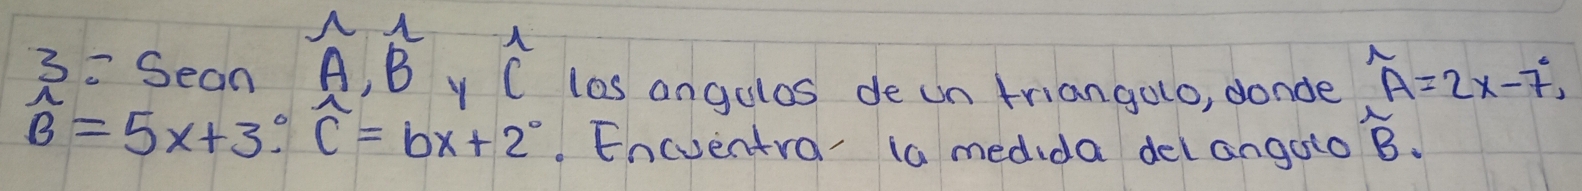 3= Sean Â, B̂ y Ĉ los angulos de un triangulo, donde Â=2x-7°,
B̂=5x+3°. Ĉ=6x+2°. Encuentra la medida del angulo B̂.